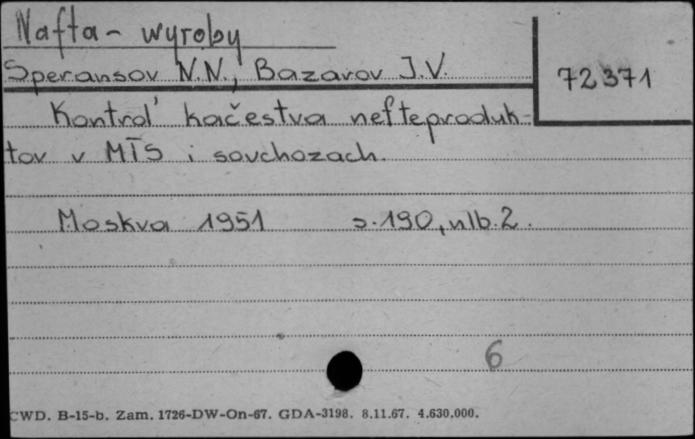 Nafta - wyroby
Speransov N.N., Bazarov J.V.
72371
Kontrol' kačestva nefteproduk-
tov v MTS i sovchozach.
Moskva 1951 s. 190, nlb. 2.
6
CWD. B-15-b. Zam. 1726-DW-On-67. GDA-3198. 8.11.67. 4.630.000.